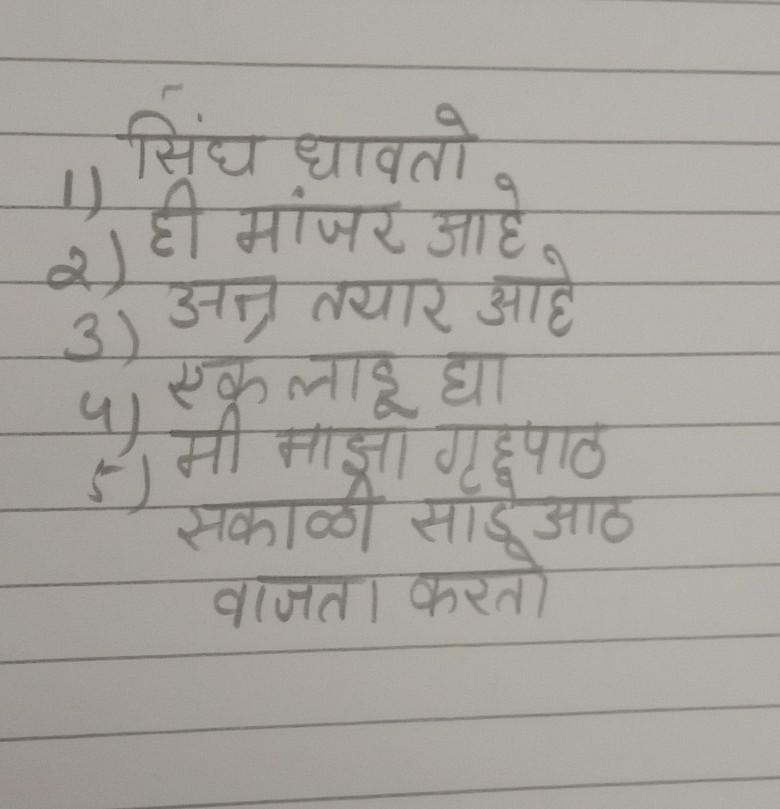 1) सिंघ धावतो
२) ही मांजर आहे
3) अन्न तयार आहे
५) एक लाडू घा
5) मी माझा गृहपाठ
सकाळी साडेआठ
वाजता करतो